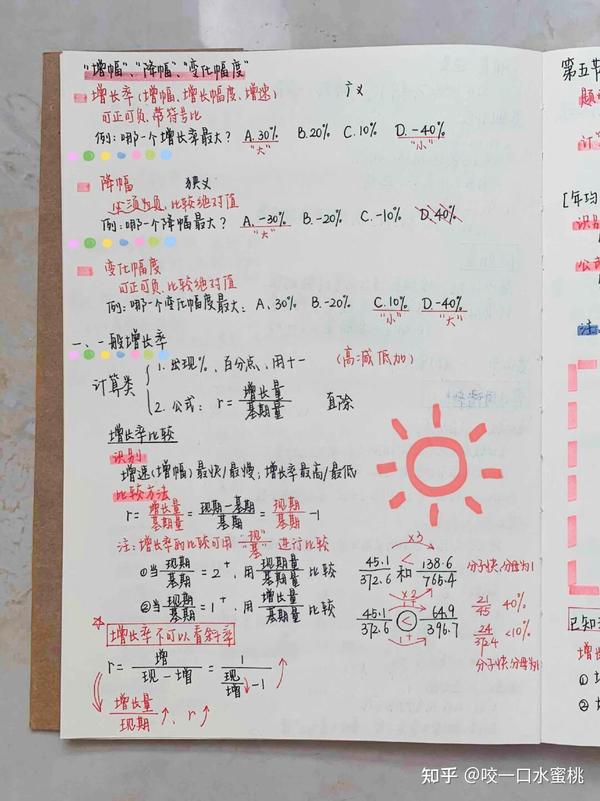 "增幅"、"降幅"、"变化幅度"
增长率(增幅、增长幅度、增速) 广义
可正可负,带符号比
例:哪一个增长率最大? A.30% B.20% C.10% D.-40%
"大" "小"
降幅 狭义
必须为负,比较绝对值
例:哪一个降幅最大? A.-30% B.-20% C.-10% D.40%
"大"
变化幅度
可正可负,比较绝对值
例:哪一个变化幅度最大: A.30% B.-20% C.10% D-40%
"小" "大"
一、一般增长率
计算类
1. 出现%、百分点,用+- (高:减 低:加)
2. 公式: r=增长量/基期量 直除
增长率比较
识别
增速(增幅)最快/最慢;增长率最高/最低
比较方法
r=增长量/基期量=现期-基期/基期=现期/基期-1
注:增长率的比较可用"现"/"基"进行比较
①当现期/基期=2⁺,用现期量/基期量比较
②当现期/基期=1⁺,用增长量/基期量比较
×3
45.1/372.6 < 和 138.6/765.4 分子快,分母为1
×2
1+
45.1/372.6 < 64.9/396.7
1+
21/45 40%
24/372.4 <10%
分子快,分母为1
增长率不可以看斜率
r=增/现-增=1/现/增-1↑
增长量/现期↑、r↑
第五节
[年均
识别
公式
注
已知
增长
①
②
知乎 @咬一口水蜜桃